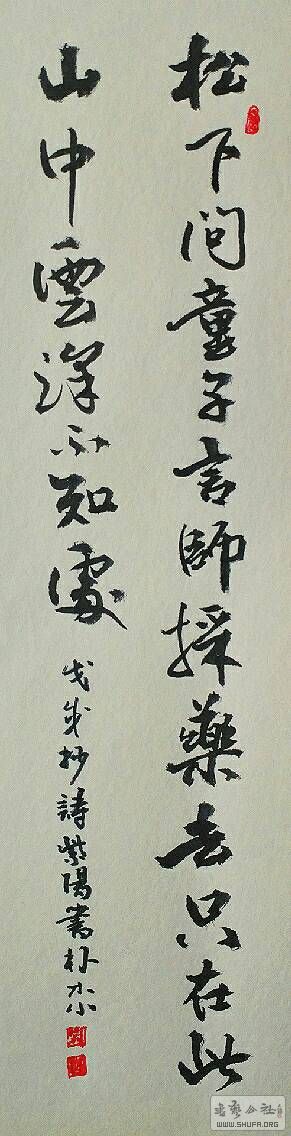 松下問童子言師採藥去只在此
山中雲深不知處
抄詩紫陽書
书艺公社
WWW.SHUFA.ORG